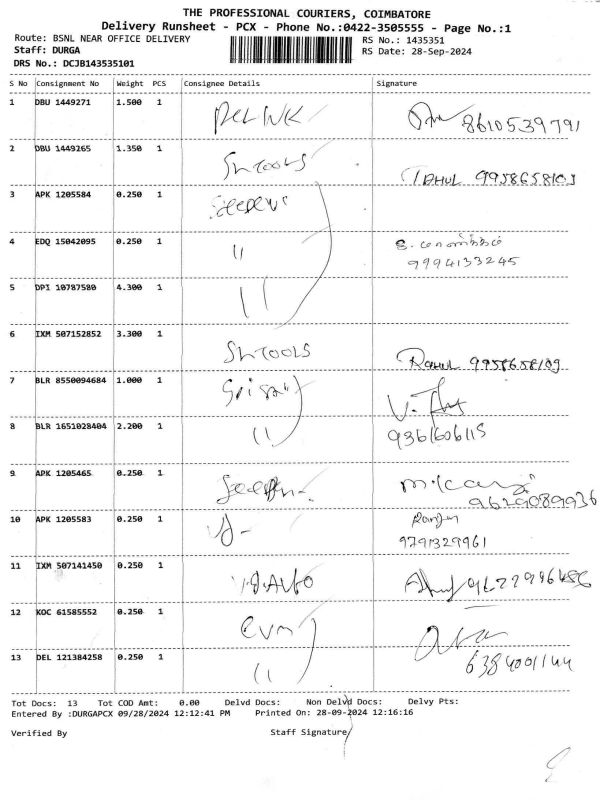 THE PROFESSIONAL COURIERS, COIMBATORE
Delivery Runsheet - PCX - Phone No.:0422-3505555 - Page No.:1
Route: BSNL NEAR OFFICE DELIVERY RS No.: 1435351
Staff: DURGA RS Date: 28-Sep-2024
DRS No.: DCJB143535101
S No Consignment No Weight PCS Consignee Details Signature
1 DBU 1449271 1.500 1 8610539791
2 DBU 1449265 1.350 1 Sh TOOLS RAHUL 9958658109
3 APK 1205584 0.250 1
4 EDQ 15042095 0.250 1 11 9994133245
5 DPI 10787580 4.300 1 11
6 IXM 507152852 3.300 1 Sh TOOLS RAHUL 9958658109
7 BLR 8550094684 1.000 1
8 BLR 1651028404 2.200 1 11 9361606115
9 APK 1205465 0.250 1 9629089936
10 APK 1205583 0.250 1 Ranjan
9791329961
11 IXM 507141450 0.250 1
12 KOC 61585552 0.250 1 evm
13 DEL 121384258 0.250 1 11 6384001144
Tot Docs: 13 Tot COD Amt: 0.00 Delvd Docs: Non Delvd Docs: Delvy Pts:
Entered By :DURGAPCX 09/28/2024 12:12:41 PM Printed On: 28-09-2024 12:16:16
Verified By Staff Signature